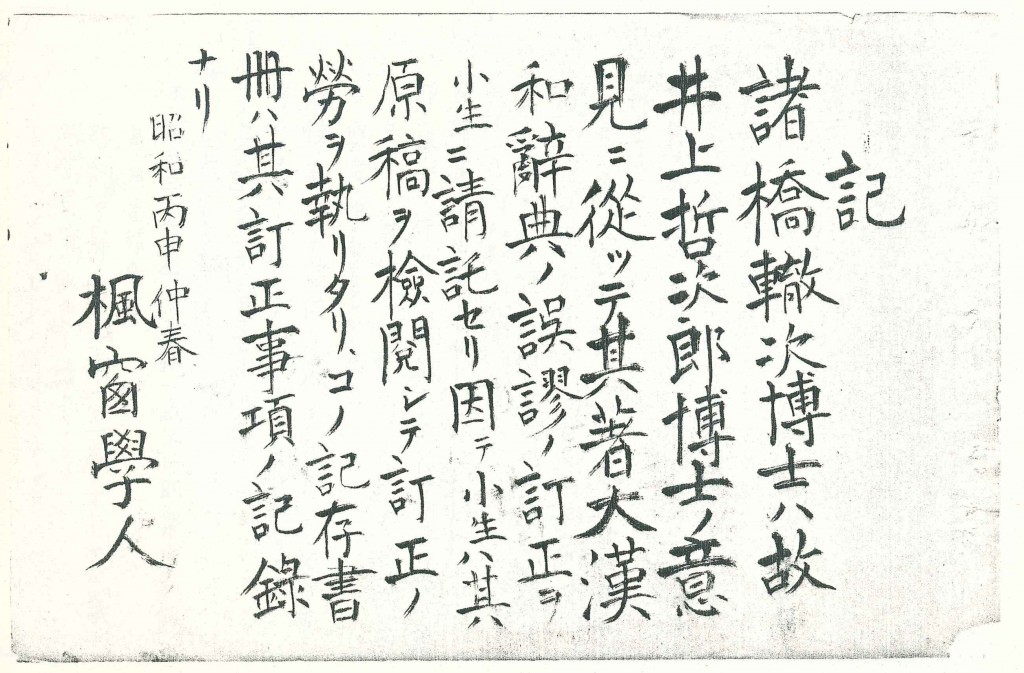 記
諸橋轍次博士ハ故
井上哲次郎博士ノ意
見ニ從ッテ其著大漢
和辭典ノ誤謬ノ訂正ヲ
小生ニ請託セリ因テ小生ハ其
原稿ヲ檢閲シテ訂正ノ
勞ヲ執リタリ、コノ記存書
冊ハ其訂正事項ノ記錄
ナリ
昭和丙申仲春
楓窗學人